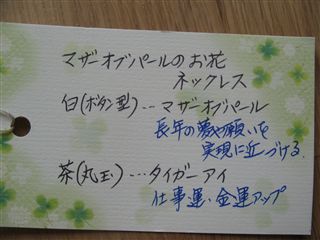 マザーオブパールのお花
ネックレス
白(ボタン型)…マザーオブパール
長年の夢や願いを
実現に近づける.
茶(丸玉)…タイガーアイ
仕事運・金運アップ